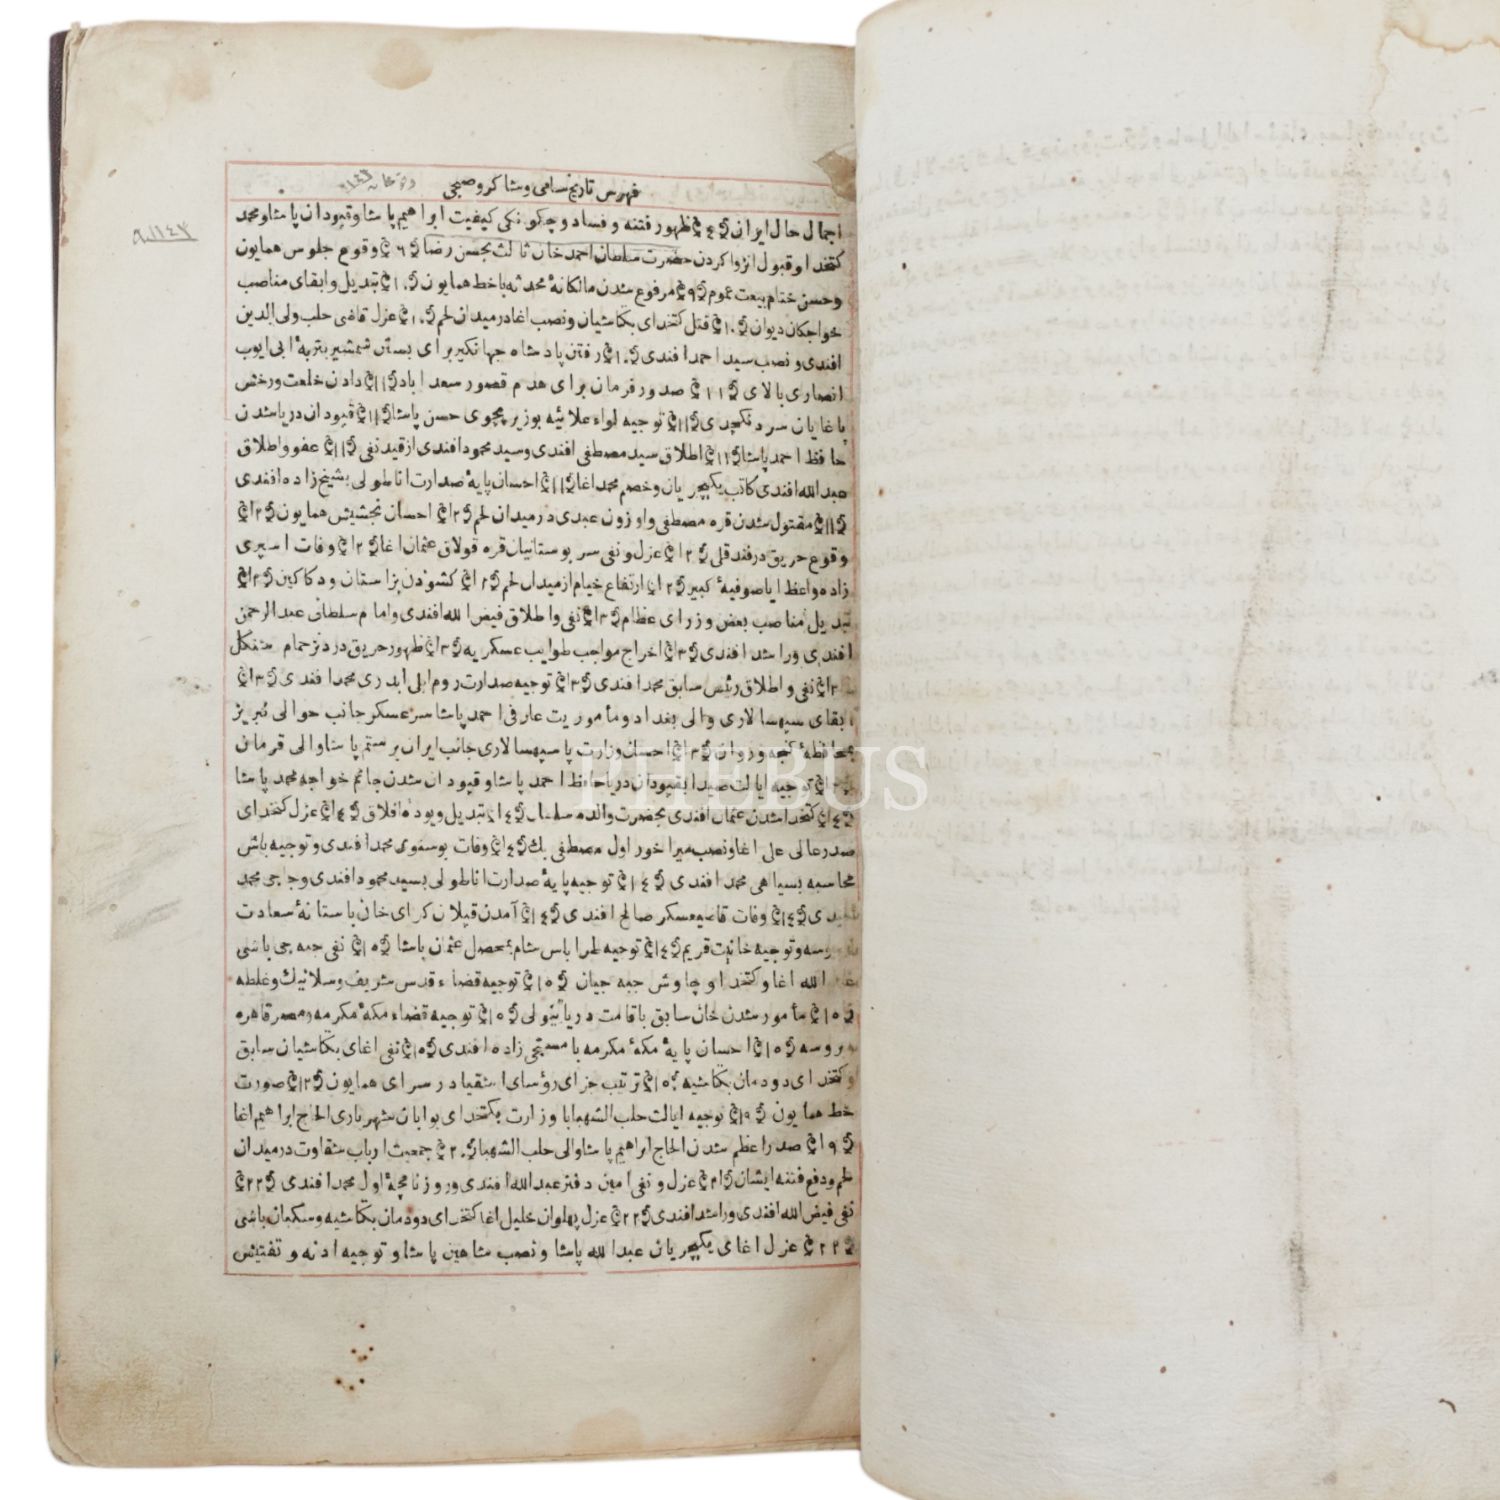 فهرس تاريخ سامی و شاکر و صبحی
١١٤٣
اجمال حال ایران ٤ ظهور فتنه و فساد و چگونگی کیفیت ابراهیم پاشا و قپودان پاشا و محمد
کتخدا و قبول انزوا کردن حضرت سلطان احمد خان ثالث بحسن رضا ٦ وقوع جلوس همایون
و حسن ختام بیعت عموم ٩ مرفوع شدن مالکانهٔ محدثه با خط همایون ١٠ تبدیل و ابقای مناصب
خواجکان دیوان ١٠ قتل کتخدای بکتاشیان و نصب اغا در میدان لحم ١٠ عزل قاضی حلب ولی الدین
افندی و نصب سید احمد افندی ١٠ رفتن پادشاه جهانکیر برای بستن شمشیر بتربهٔ ابی ایوب
انصاری بالای ١١ صدور فرمان برای هدم قصور سعداباد ١١ دادن خلعت ورخش
باغایان سردنکچدی ١١ توجیه لواء علائیه بوزیر پچوی حسن پاشا ١١ قپودان دریا شدن
حافظ احمد پاشا ١١ اطلاق سید مصطفی افندی و سید محمود افندی از قید نفی ١١ عفو و اطلاق
عبدالله افندی کاتب یکیچریان و خصم محمد اغا ١١ احسان پایهٔ صدارت اناطولی بشیخ زاده افندی
١١ مقتول شدن قره مصطفی و اوزون عبدی در میدان لحم ١٢ احسان بخشیش همایون ١٢
وقوع حریق در فندقلی ١٢ عزل و نفی سر بوستانیان قره قولاق عثمان اغا ١٢ وفات اسپری
زاده واعظ ایاصوفیهٔ کبیر ١٢ ارتفاع خیام از میدان لحم ١٢ کشودن بزاستان و دکاکین ١٣
تبدیل مناصب بعض وزرای عظام ١٣ نفی و اطلاق فیض الله افندی و امام سلطانی عبدالرحمن
افندی و راشد افندی ١٣ اخراج مواجب طوایف عسکریه ١٣ ظهور حریق در دنز حمام
١٣ نفی و اطلاق رئیس سابق محمد افندی ١٣ توجیه صدارت روم ایلی ابدری محمد افندی ١٣
ابقای سپهسالاری والی بغداد و مأموریت عارفی احمد پاشا سرعسکر جانب حوالی تبریز
محافظهٔ کنجه و روان ١٣ احسان وزارت با سپهسالاری جانب ایران برستم پاشا والی قرمان
توجیه ایالت صیدا بقپودان دریا حافظ احمد پاشا و قپودان شدن جانم خواجه محمد پاشا
١٤ کتخدا شدن عثمان افندی بحضرت والدهٔ سلطان ١٤ تبدیل ویودهٔ افلاق ١٤ عزل کتخدای
صدر عالی علی اغا و نصب میراخور اول مصطفی بك ١٤ وفات یوسفوی محمد افندی و توجیه باش
محاسبه بسیاهی محمد افندی ١٤ توجیه پایهٔ صدارت اناطولی بسید محمود افندی و جی محمد
١٤ وفات قاضیعسکر صالح افندی ١٤ آمدن قپلان کرای خان باستانهٔ سعادت
و توجیه خانیت قریم ١٤ توجیه طرابلس شام بمحصل عثمان پاشا ١٥ نفی جبه جی باشی
عبدالله اغا و کتخدا و چاوش جبه جیان ١٥ توجیه قضاء قدس شریف و سلانیك و غلطه
١٥ مأمور شدن خان سابق باقامت در یانبولی ١٥ توجیه قضاء مکهٔ مکرمه و مصر قاهره
١٥ احسان پایهٔ مکهٔ مکرمه با مستجی زاده افندی ١٥ نفی اغای بکتاشیان سابق
و کتخدای دودمان بکتاشیه ١٥ ترتیب جزای رؤسای اشقیا در سرای همایون ١٦ صورت
خط همایون ١٩ توجیه ایالت حلب الشهبا با وزارت بکتخدای بوابان شهریاری الحاج ابراهیم اغا
١٩ صدر اعظم شدن الحاج ابراهیم پاشا والی حلب الشهبا ٢٠ جمعیت ارباب شقاوت در میدان
لحم و دفع فتنه ایشان ٢١ عزل و نفی امین دفتر عبدالله افندی و روزنامچهٔ اول محمد افندی ٢٢
نفی فیض الله افندی و راشد افندی ٢٢ عزل پهلوان خلیل اغا کتخدای دودمان بکتاشیه و سکبان باشی
٢٢ عزل اغای یکیچریان عبدالله پاشا و نصب شاهین پاشا و توجیه ادنه و تفتیش
PHEBUS